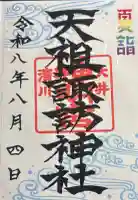 夏詣
天祖諏訪神社
令和八年八月四日